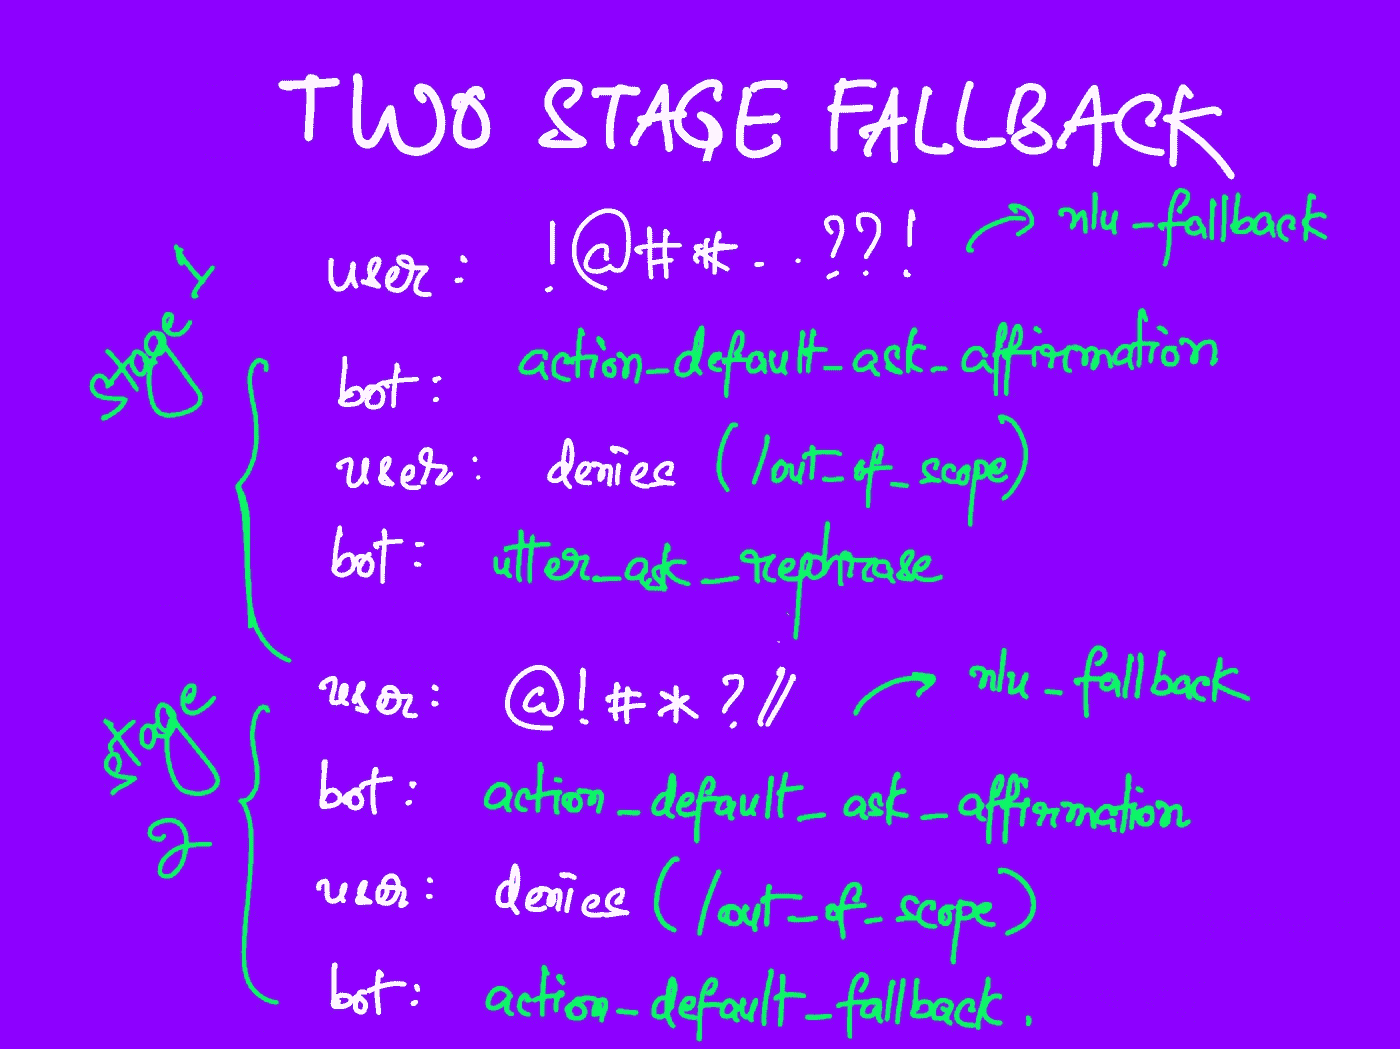 TWO STAGE FALLBACK
user: !@#*-..??! nlu-fallback
stage 1
bot: action_default_ask_affirmation
user: denies (/out_of_scope)
bot: utter_ask_rephrase
user: @!#*?// nlu-fallback
stage 2
bot: action_default_ask_affirmation
user: denies (/out_of_scope)
bot: action_default_fallback.